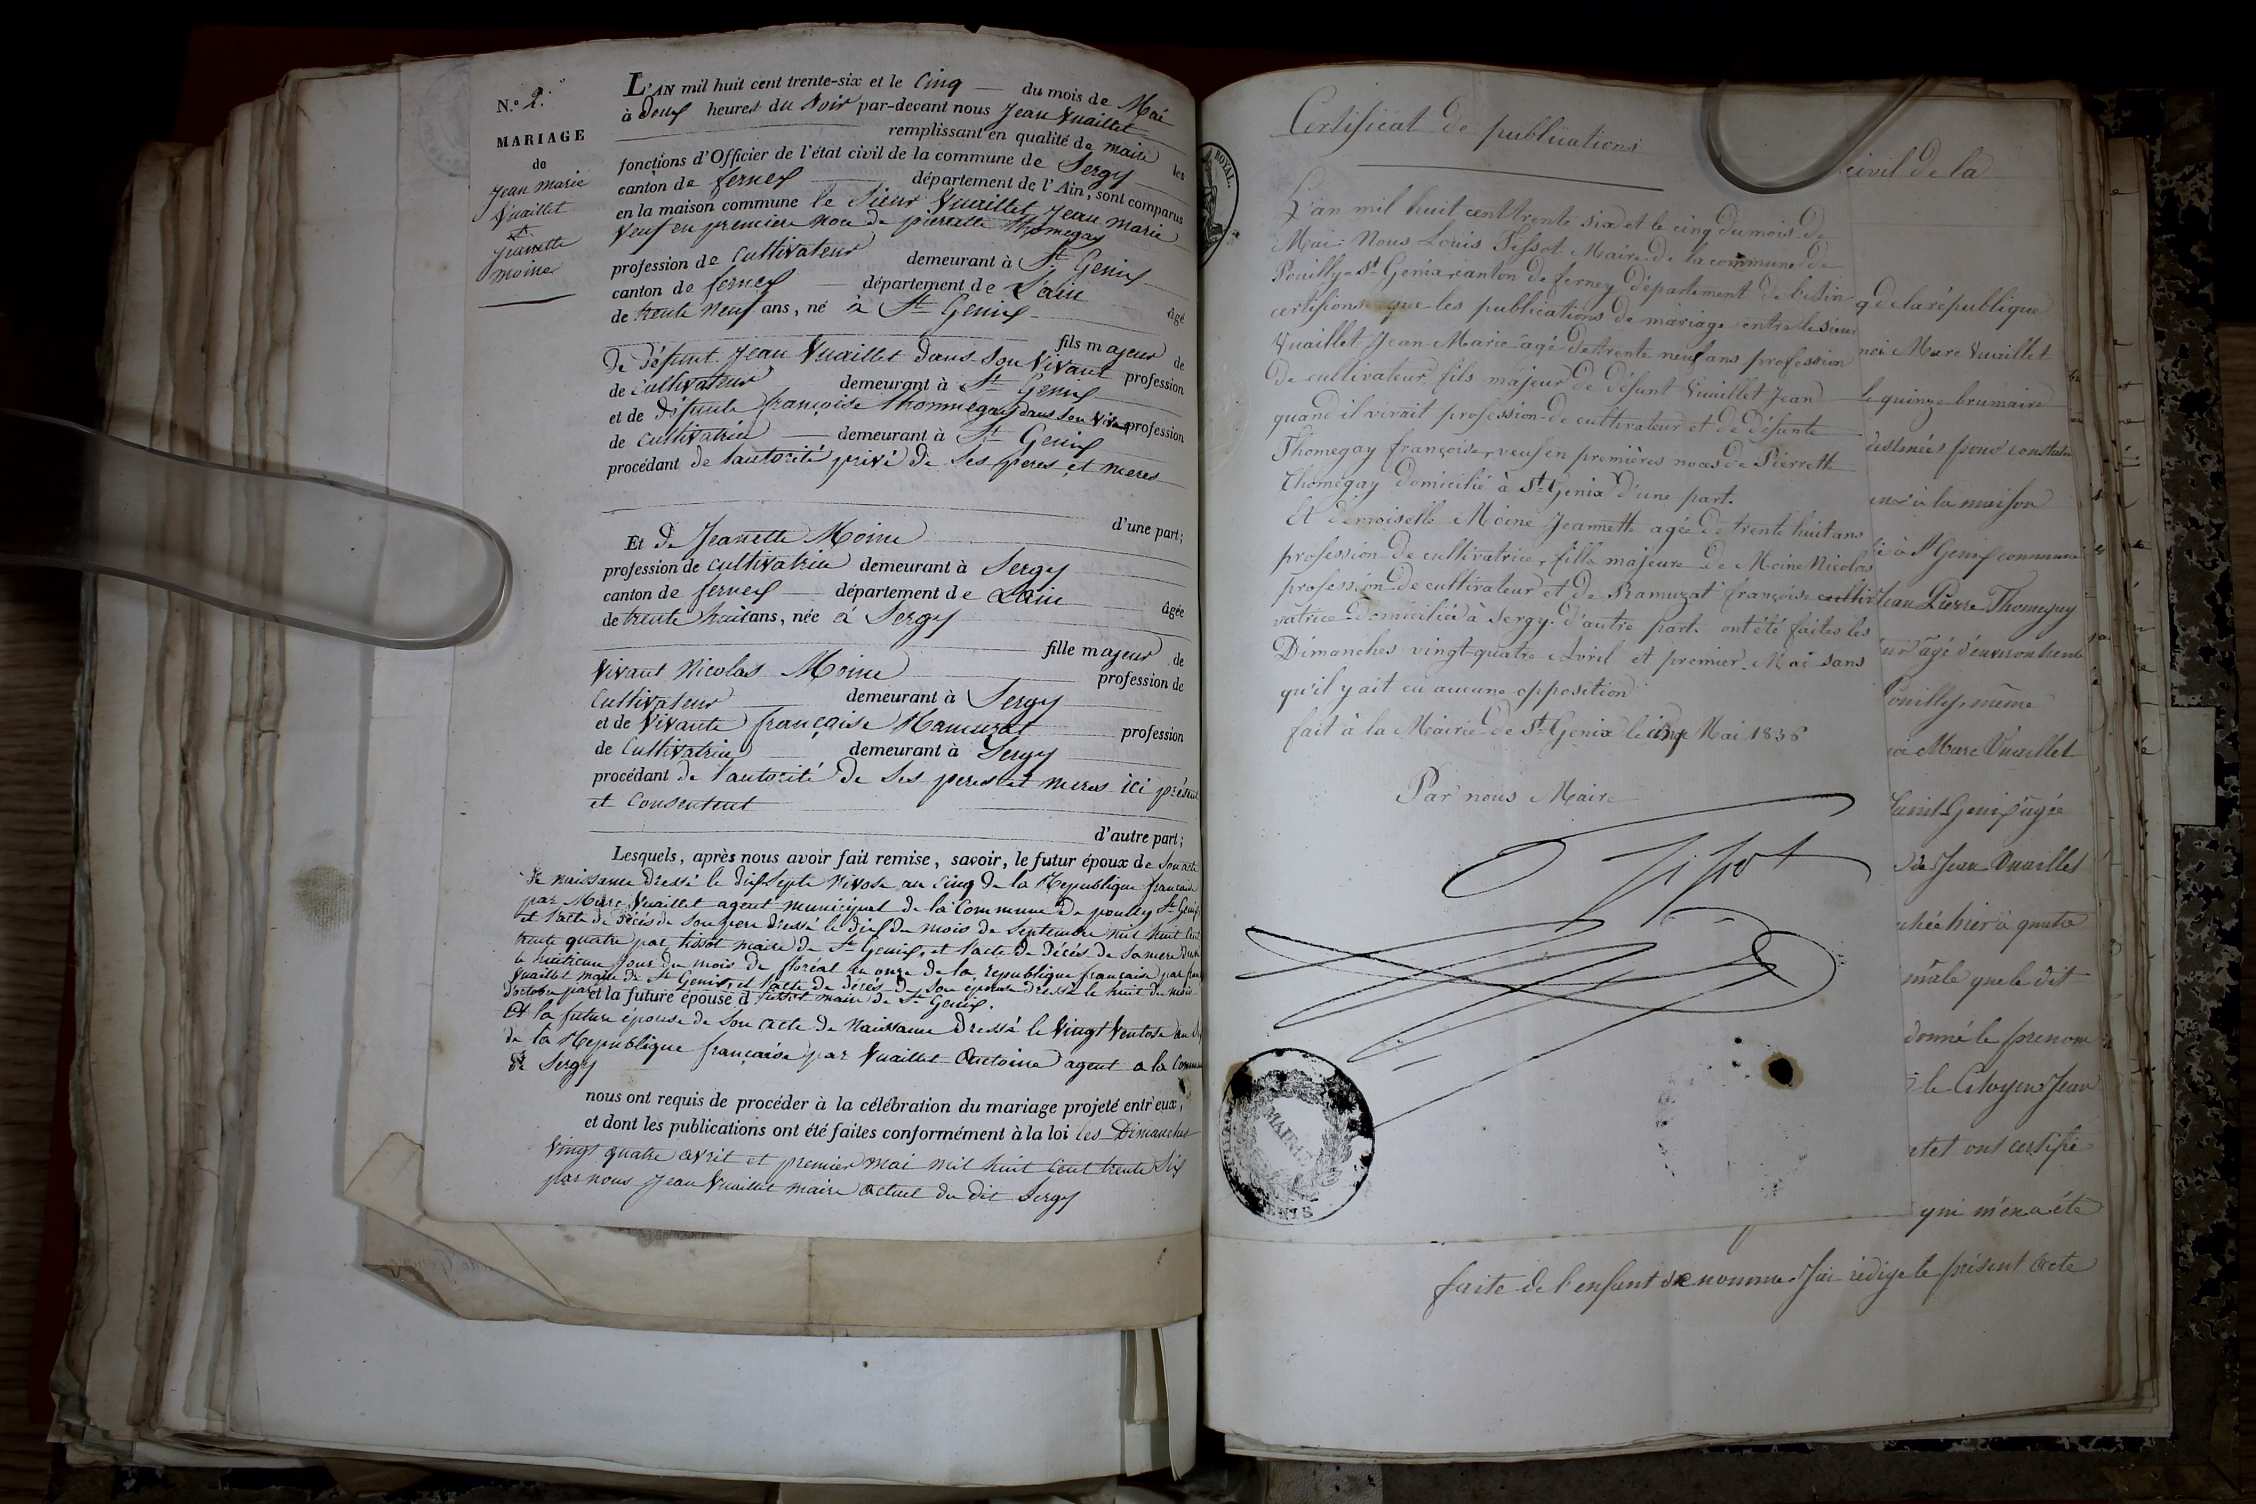 N.º 2.
MARIAGE
de
Jean marie
Vuaillet
et
Jeanette
moine
L'AN mil huit cent trente-six et le cinq du mois de Mai
à deux heures du Soir par-devant nous Jean Vuaillet
remplissant en qualité de maire les
fonctions d'Officier de l'état civil de la commune de Sergy
canton de fernex département de l'Ain, sont comparus
en la maison commune le Sieur Vuaillet Jean marie
Veuf en premiere noce de pierrette thomegay
profession de Cultivateur demeurant à St Genix
canton de fernex département de L'ain âgé
de trente neuf ans, né à St Genix
fils majeur de
De défunt Jean Vuaillet dans Son Vivant profession
de Cultivateur demeurant à St Genix
et de défunte françoise thomegay dans Son Vivant profession
de Cultivatrice demeurant à St Genix
procédant de l'autorité privé de Ses peres et meres
d'une part;
Et de Jeanette Moine
profession de Cultivatrice demeurant à Sergy
canton de fernex département de Lain âgée
de trente huit ans, née à Sergy
fille majeur de
Vivant Nicolas Moine profession de
Cultivateur demeurant à Sergy
et de Vivante françoise Ramuzat profession
de Cultivatrice demeurant à Sergy
procédant de l'autorité de Ses peres et meres ici présent
et Consentent
d'autre part;
Lesquels, après nous avoir fait remise, savoir, le futur époux de Son acte
de naissance dressé le dix Septe Nivose an Cinq de la Republique francaise
par Marc Vuaillet agent municipal de la Commune de pouilly St Genix
et l'acte de décés de Son pere dressé le dix du mois de Septembre mil huit Cent
trente quatre par tissot maire de St Genix, et l'acte de décés de Sa mere
le huitieme Jour du mois de floréal an onze de la republique francaise par
Vuaillet maire de St Genix, et l'acte de décés de Son épouse dressé le huit du mois
d'octobre par et la future épouse d tissot maire de St Genix.
Et la future épouse de Son acte de Naissance dressé le Vingt Ventose an
de la Republique francaise par Vuaillet Antoine agent a la Commune
de Sergy
nous ont requis de procéder à la célébration du mariage projeté entr'eux,
et dont les publications ont été faites conformément à la loi les Dimanches
Vingt quatre avril et premier mai mil huit Cent trente Six
par nous Jean Vuaillet maire actuel du dit Sergy
ROYAL
Certificat de publications
L'an mil huit cent trente six et le cinq du mois de
Mai: Nous Louis Tissot Maire de la commune de
Pouilly-St Genix canton de ferney département de l'Ain
certifions que les publications de mariage entre le sieur
Vuaillet Jean Marie agé de trente neuf ans profession
De cultivateur fils majeur de défunt Vuaillet Jean
quand il vivait profession de cultivateur et de défunte
Thomegay françoise, veuf en premières noces de Pierrette
Thomégay domicilié à St Genix d'une part.
Et demoiselle Moine Jeannette agée de trente huit ans
profession de cultivatrice, fille majeure de Moine Nicolas
profession de cultivateur et de Ramuzat françoise culti
vatrice domiciliés à Sergy d'autre part ont été faites les
Dimanches vingt-quatre Avril et premier Mai sans
qu'il y ait eu aucune opposition
fait à la Mairie de St Genix le cinq Mai 1836
Par nous Maire
Tissot
MAIRIE
GENIS
civil de la
q de la république
moi Marc Vuaillet
le quinze brumaire
destinés pour constater
à la maison
à St Genix commune
Jean Pierre Thomegay
agé d'environ trente
Pouilly, même
Marc Vuaillet
Saint Genix agée
de Jean Vuaillet
hier à quatre
mâle que le dit
donné le prenom
le Citoyen Jean
et ont certifié
qui m'en a été
faite de l'enfant denommé J'ai rédigé le présent Acte